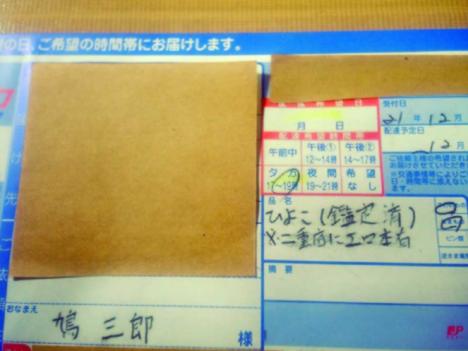 の日、ご希望の時間帯にお届けします。
受付日
21年12月
月 日
配達予定日
12月
配達希望時間帯
午前中 午後① 12~14時 午後② 14~17時
夕方 17~19時 夜間 19~21時 希望なし
品名
ひよこ(鑑定済)
※二重底にエロ本有
摘要
おなまえ
鳩 三郎 様